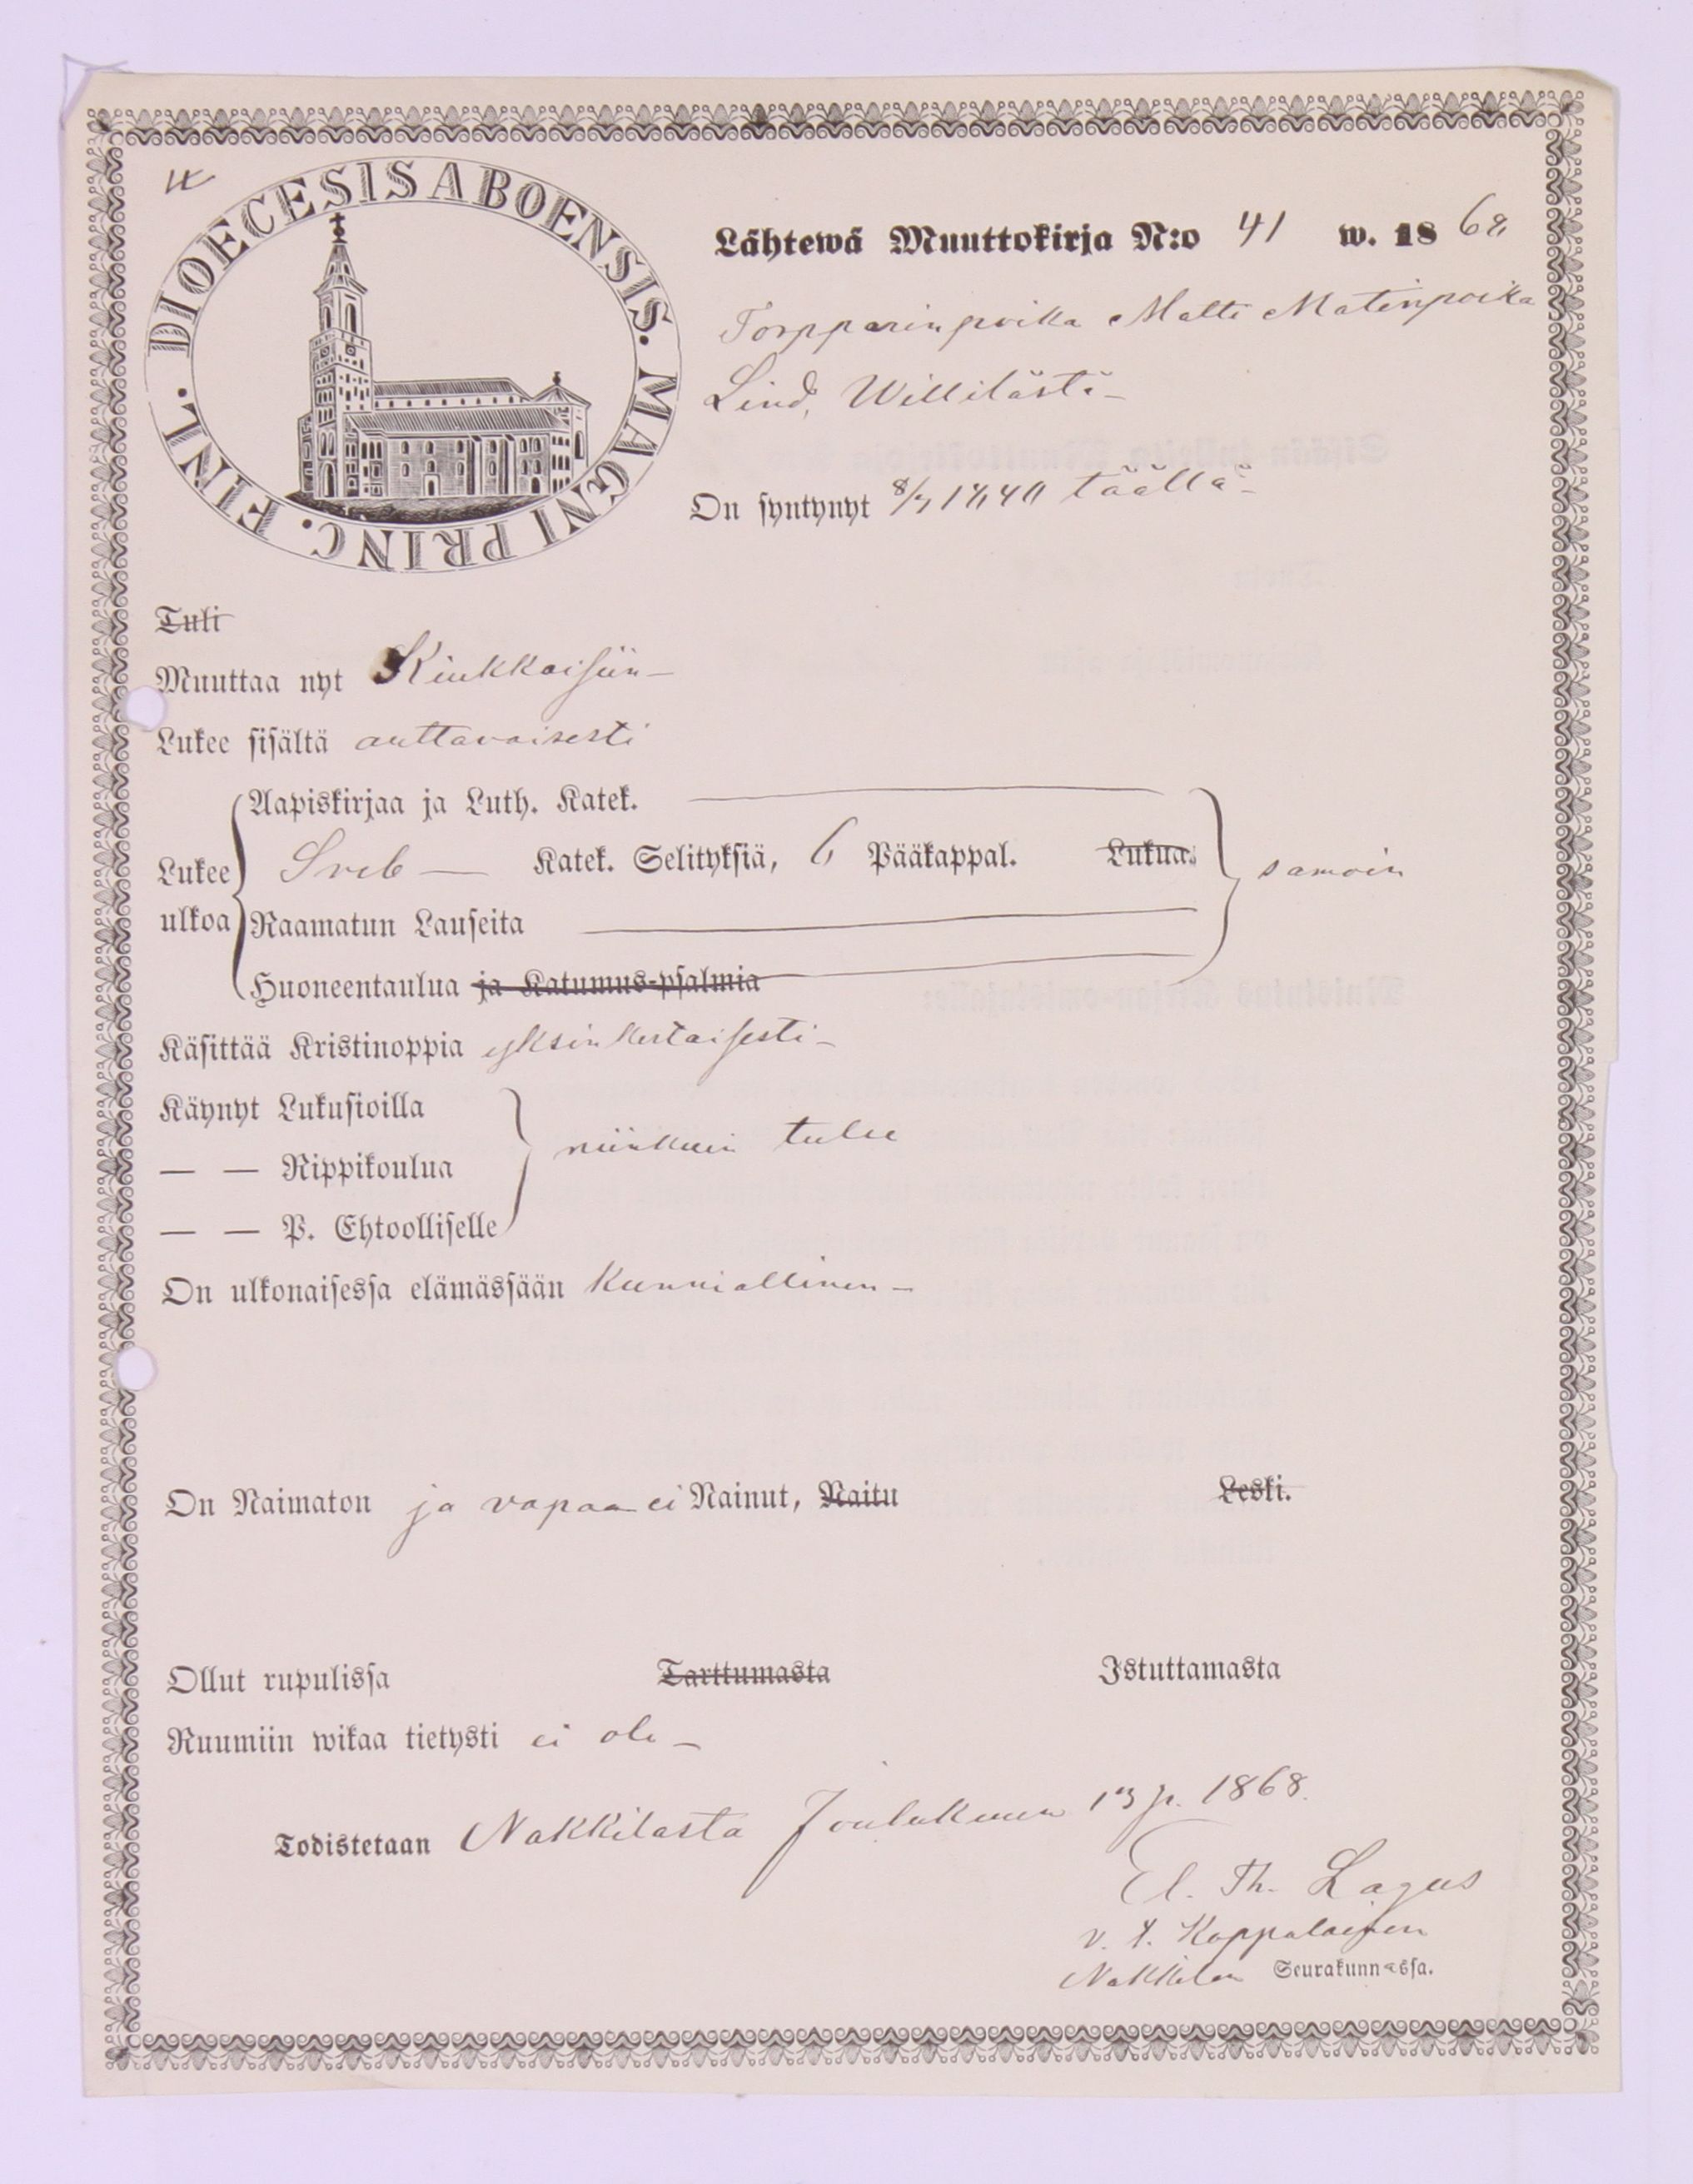 DIOECESIS ABOENSIS. MAGNI PRINC. FINL.
Lähtewä Muuttokirja N:o 41 w. 1868
Torpparinpoika Matti Matinpoika
Lind, Willilästä
On syntynyt 8/7 1840 täällä
Tuli
Muuttaa nyt Kiukkaisiin
Lukee sisältä auttavaisesti
Aapiskirjaa ja Luth. Katek.
Lukee ulkoa Sveb Katek. Selityksiä, 6 Pääkappal. Lukua. samoin
Raamatun Lauseita
Huoneentaulua ja Katumus-psalmia
Käsittää Kristinoppia yksinkertaisesti
Käynyt Lukusioilla
— — Rippikoulua niinkuin tulee
— — P. Ehtoolliselle
On ulkonaisessa elämässään kunniallinen
On Naimaton ja vapaa ei Nainut, Naitu Leski.
Ollut rupulissa Tarttumasta Istuttamasta
Ruumiin wikaa tietysti ei ole
Todistetaan Nakkilasta Joulukuun 13 p. 1868.
El. Th. Lagus
v. t. Kappalainen
Nakkilan Seurakunnassa.